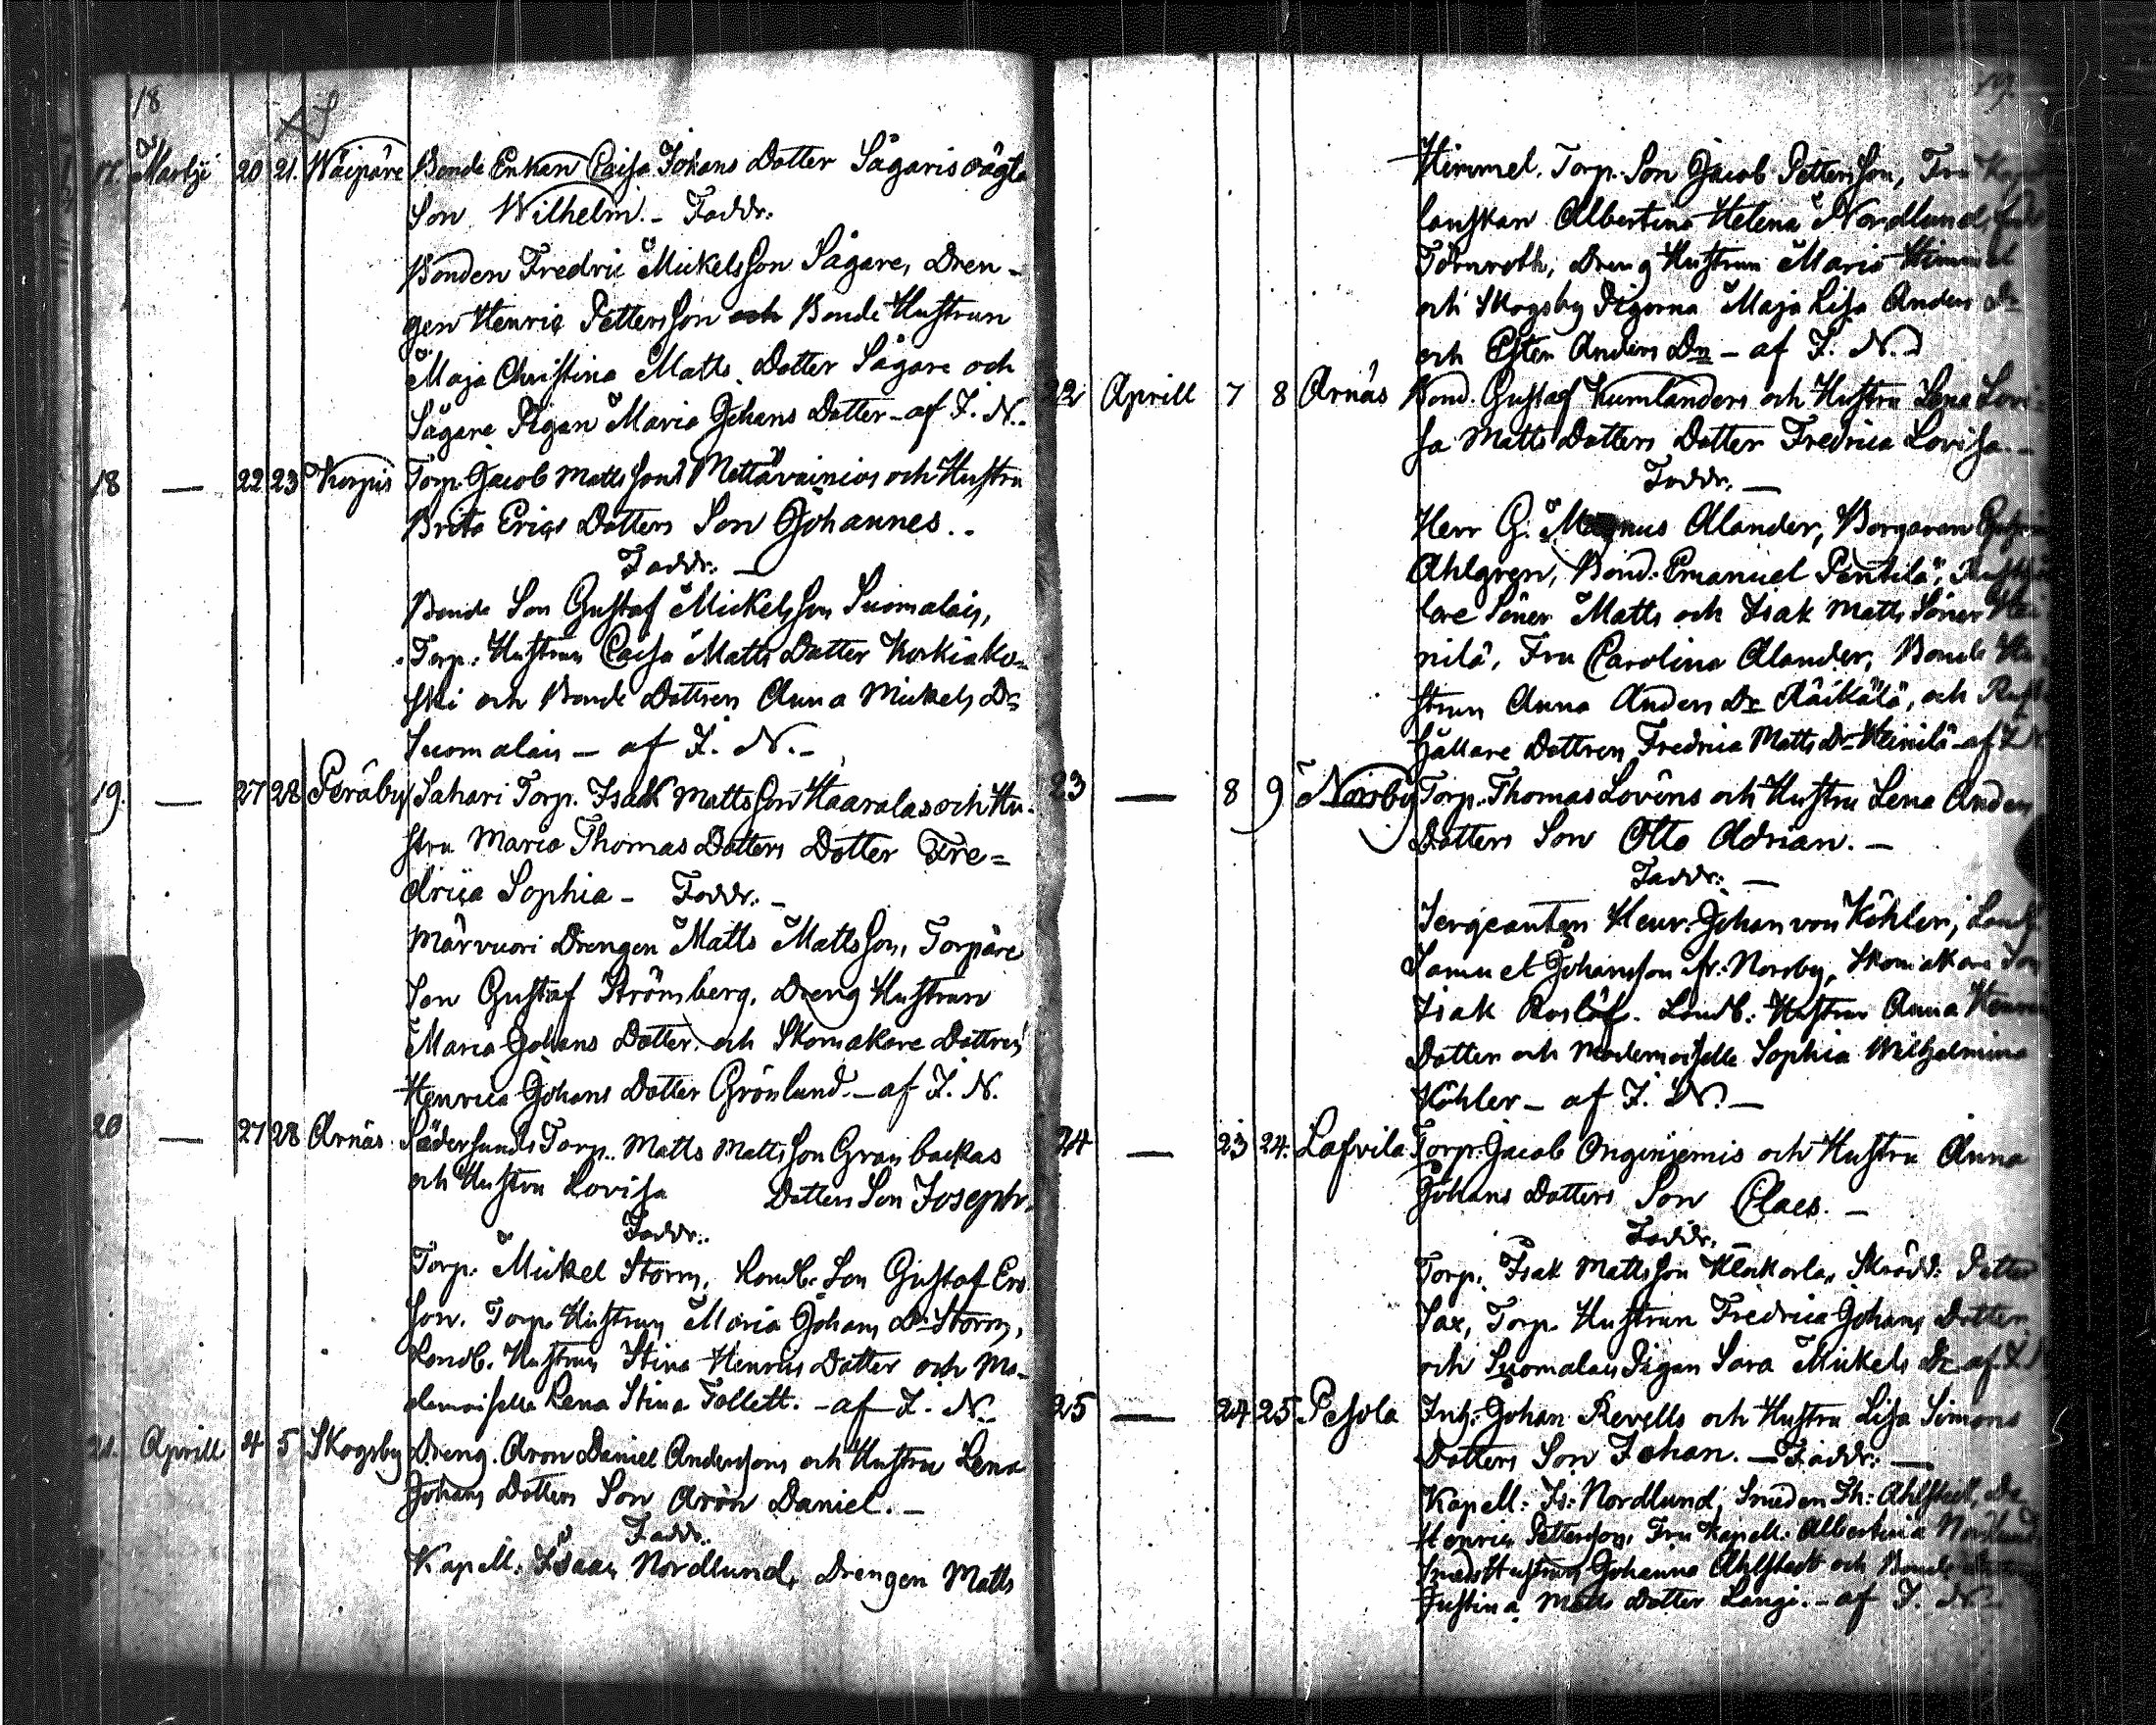 18
17. Martji 20 21. Wäipäre Bonde Enkan Caisa Johans Dotter Sågaris oägta
Son Wilhelm. - Faddr:
Bonden Fredric Mickelsson Sågare, Dren-
gen Henric Pettersson och Bonde Hustrun
Maja Christina Matts Dotter Sågare och
Sågare Pigan Maria Johans Dotter - af I. N.
18 — 22 23 Korpis Torp. Jacob Mattssons Mettävainios och Hustru
Brita Erics Dotters Son Johannes. -
Faddr: —
Bonde Son Gustaf Mickelsson Suomalais,
Torp. Hustrun Caisa Matts Dotter Korkiako-
ski och Bonde Dottren Anna Mickels Dr
Suomalais - af I. N. -
19. — 27 28 Peräby Sahari Torp. Isaak Mattsson Haaralas och Hu-
stru Maria Thomas Dotters Dotter Fre=
drica Sophia - Faddr. -
Märvuori Drengen Matts Mattsson, Torpare
Son Gustaf Strömberg, Dreng Hustrun
Maria Johans Dotter och Skomakare Dottren
Henrica Johans Dotter Grönlund. - af I. N.
20 — 27 28 Arnäs Södersunds Torp. Matts Mattsson Granbackas
och Hustru Lovisa Dotters Son Joseph.
Faddr:
Torp. Mickel Storm, Landb. Son Gustaf Ers
son, Torp. Hustrun Maria Johans Dr Storm,
Landb. Hustrun Stina Henrics Dotter och Ma-
demoiselle Lena Stina Follett. - af I. N.
21. Aprill 4 5 Skogsby Dreng. Aron Daniel Anderssons och Hustru Lena
Johans Dotters Son Aron Daniel. -
Faddr:
Kapell. Isaac Nordlund, Drengen Matts
Himmel. Torp. Son Jacob Pettersson, Fru
lanskan Albertina Helena Nordlund, född
Törnroth, Dreng Hustrun Maria Himmel
och Skogsby Pigorna Maja Lisa Anders Dr
och Ester Anders Dr - af I. N.
22 Aprill 7 8 Arnäs Bond. Gustaf Kumlanders och Hustru Lena Lovi=
sa Matts Dotters Dotter Fredrica Lovisa. -
Faddr. —
Herr G. Magnus Alander, Borgaren
Ahlgren, Bond. Emanuel Pentilä,
lare Söner Matts och Isak Matts Söner Hei
nilä, Fru Carolina Alander, Bonde Hu
strun Anna Anders Dr Räikälä, och Rust
hållare Dottren Fredrica Matts Dr Heinilä - af I. N.
23 — 8 9 Norrby Torp. Thomas Lovéns och Hustru Lena Anders
Dotters Son Otto Adrian. -
Faddr: —
Sergeanten Henr. Johan von Köhler, Landb.
Samuel Johansson fr. Norrby, Skomakare Son
Isak Roslöf. Landb. Hustrun Anna Henrics
Dotter och Mademoiselle Sophia Wilhelmina
Köhler - af I. N. -
24 — 23 24. Lafvila Torp. Jacob Onginjemis och Hustru Anna
Johans Dotters Son Claes. -
Faddr. -
Torp. Isak Mattsson Klockarla, Skrädd. Petter
Sax, Torp. Hustrun Fredrica Johans Dotter
och Suomalais Pigan Sara Mickels Dr - af I. N.
25 — 24 25 Pesola Inh. Johan Revells och Hustru Lisa Simons
Dotters Son Johan. - Faddr: —
Kapell: Is: Nordlund, Smeden Th: Ahlstedt, Dr.
Henric Pettersson, Fru Kapell. Albertina Nordlund
Smeds Hustrun Johanna Ahlstedt och Bonde
Justina Matts Dotter Längi. - af I. N.